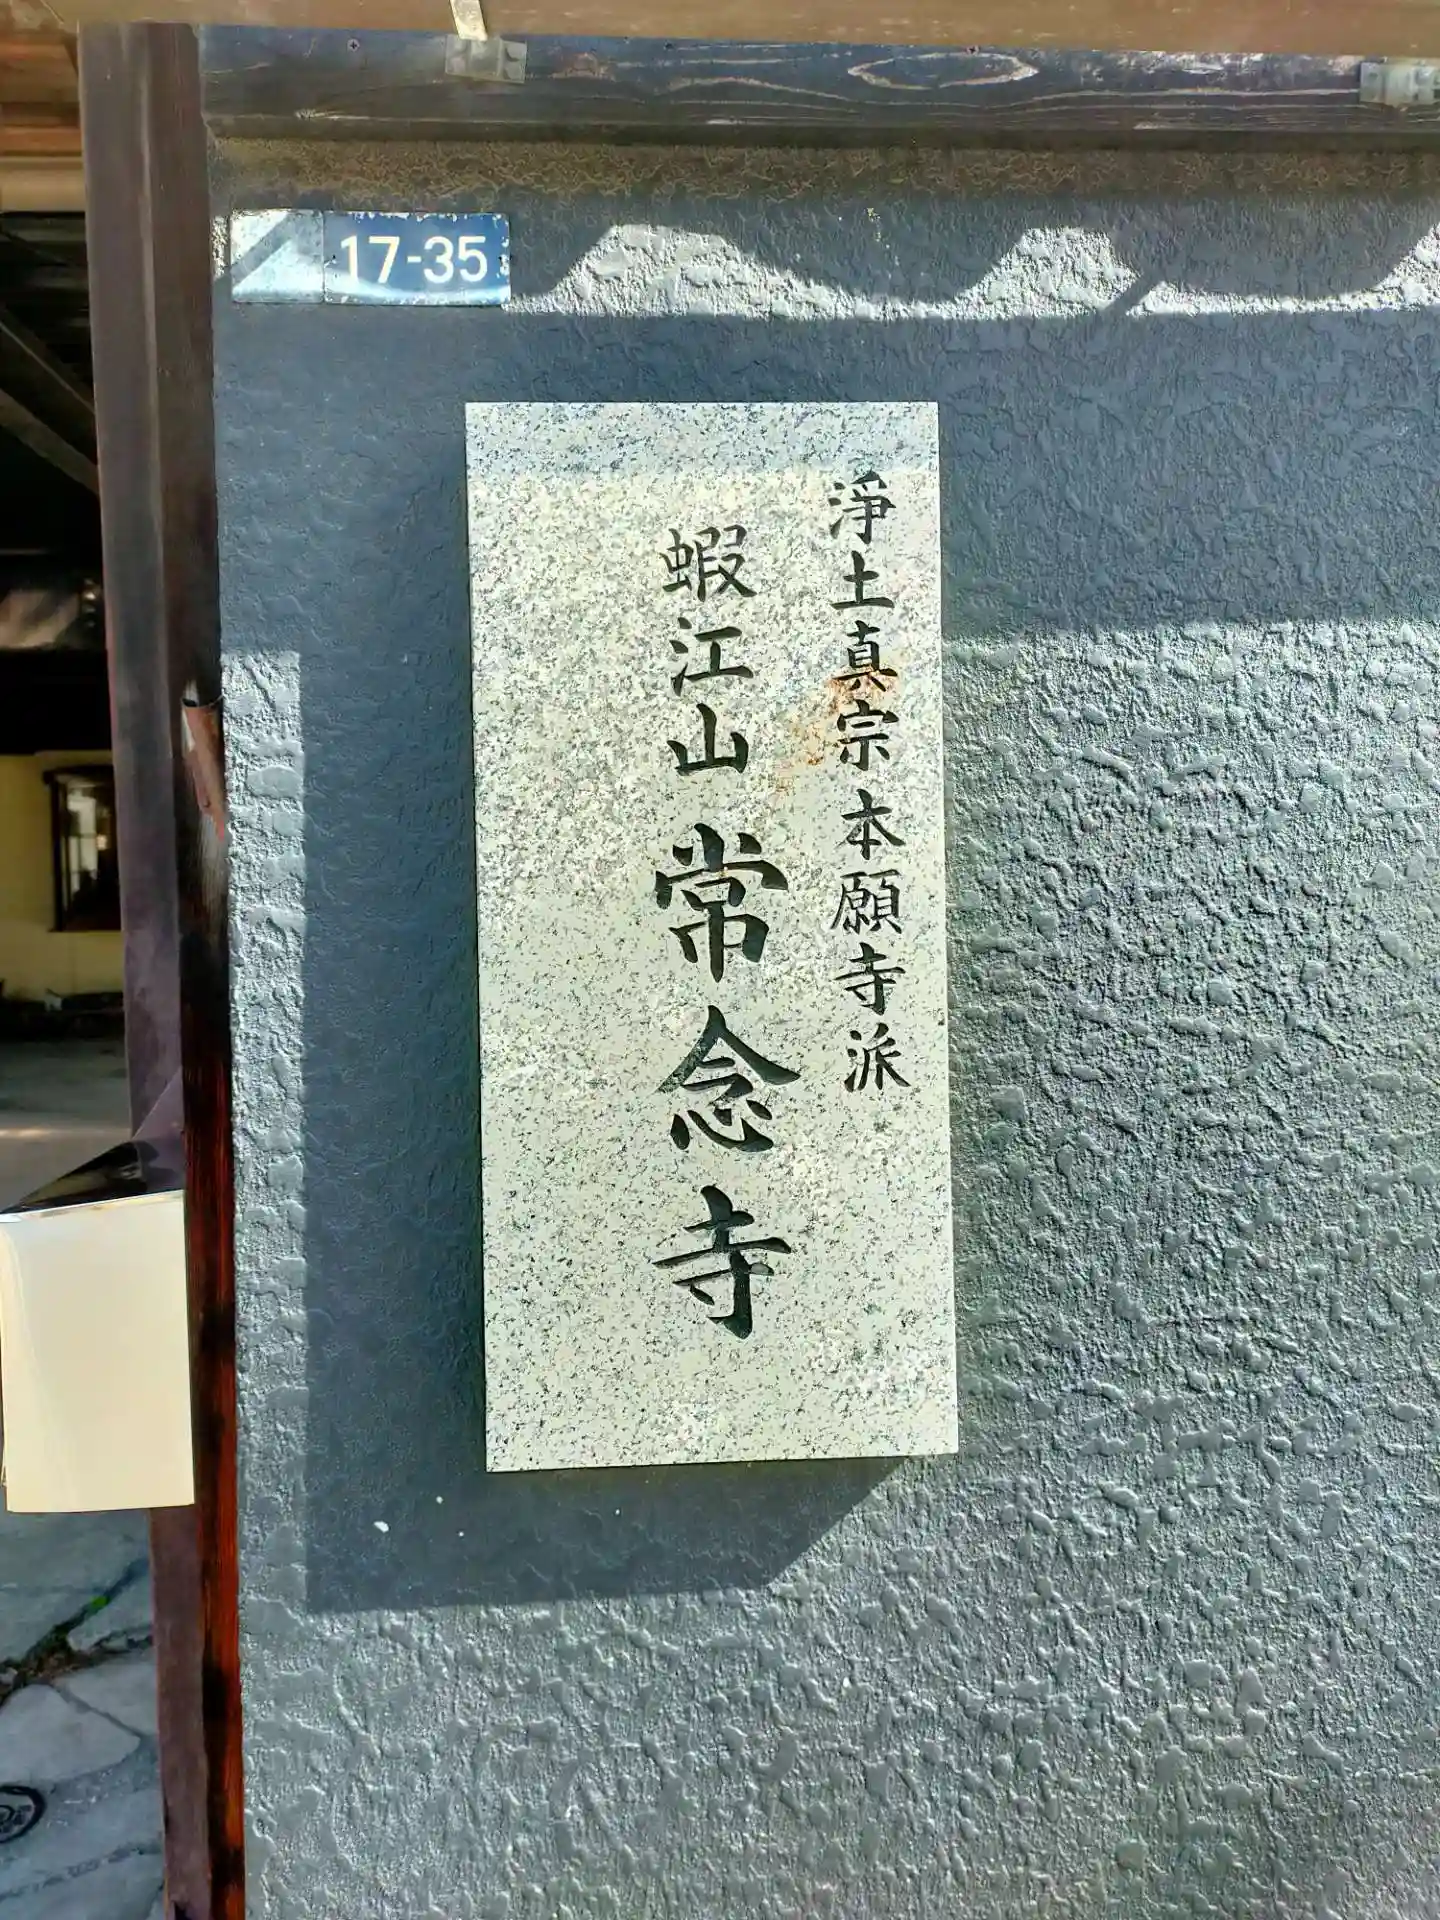 17-35
淨土真宗本願寺派
蝦江山常念寺